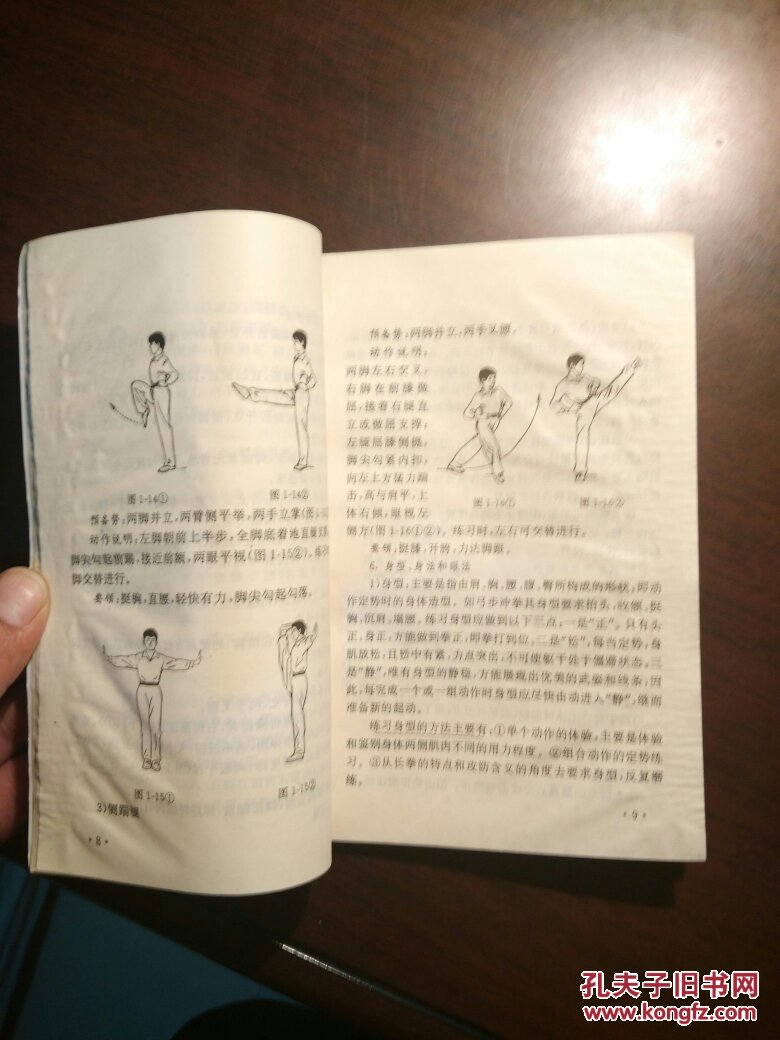 图 1-14①
图 1-14②
预备势：两脚并立，两臂侧平举，两手立掌(图1-
动作说明：左脚朝前上半步，全脚底着地直腿支
脚尖勾起前踢，接近前额，两眼平视(图1-15②)。
脚交替进行。
要领：挺胸，直腰，轻快有力，脚尖勾起勾落。
图 1-15①
图 1-15②
3)侧踹腿
·8·
预备势：两脚并立，两手叉腰。
动作说明：
两脚左右交叉，
右脚在前膝微
屈；接着右腿直
立或微屈支撑；
左腿屈膝侧提，
脚尖勾紧内扣
向左上方猛力踹
击，高与肩平，上
体右倾，眼视左
侧方(图1-16①②)。练习时，左右可交替进行。
图 1-16①
图 1-16②
要领：挺膝，开胯，力达脚跟。
6．身型、身法和眼法
1)身型：主要是指由肩、胸、腰、腹、臀所构成的形状，即动
作定势时的身体造型。如弓步冲拳其身型要求抬头，收颌，挺
胸，沉肩，塌腰。练习身型应做到以下三点：一是“正”。只有头
正，身正，方能做到拳正，即拳打到位。二是“松”，每当定势，身
肌放松，且松中有紧，力点突出，不可使躯干处于倾滞状态。三
是“静”，唯有身型的静稳，方能展现出优美的武姿和线条，因
此，每完成一个或一组动作时身型应尽快由动进入“静”，继而
准备新的起动。
练习身型的方法主要有：①单个动作的体验，主要是体验
和鉴别身体两侧肌肉不同的用力程度。②组合动作的定势练
习。③从长拳的特点和攻防含义的角度去要求身型，反复磨
练。
·9·
孔夫子旧书网
www.kongfz.com